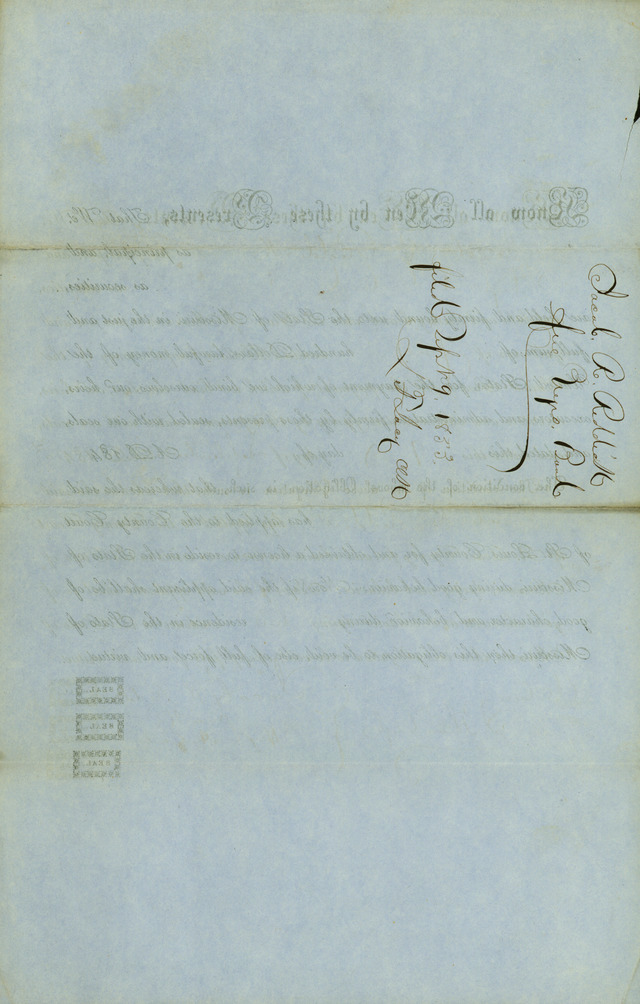 Jacob. R.
Free Bond
filed Sept 9 1853
Know all Men by these Presents, That We
as principal, and
as securities,
are held and firmly bound unto the State of Missouri, in the just and
full sum of hundred Dollars, lawful money of the
United States, for the payment of which we bind ourselves, our heirs,
executors and administrators, firmly by these presents, sealed with our seals,
dated this day of A. D. 184
The Condition of the above Obligation is such, that whereas the said
has applied to the County Court
of St. Louis County for and obtained a license to reside in the State of
Missouri, during good behavior; Now if the said applicant shall be of
good character and behavior during residence in the State of
Missouri, then this obligation to be void, else of full force and virtue.
SEAL
SEAL
SEAL